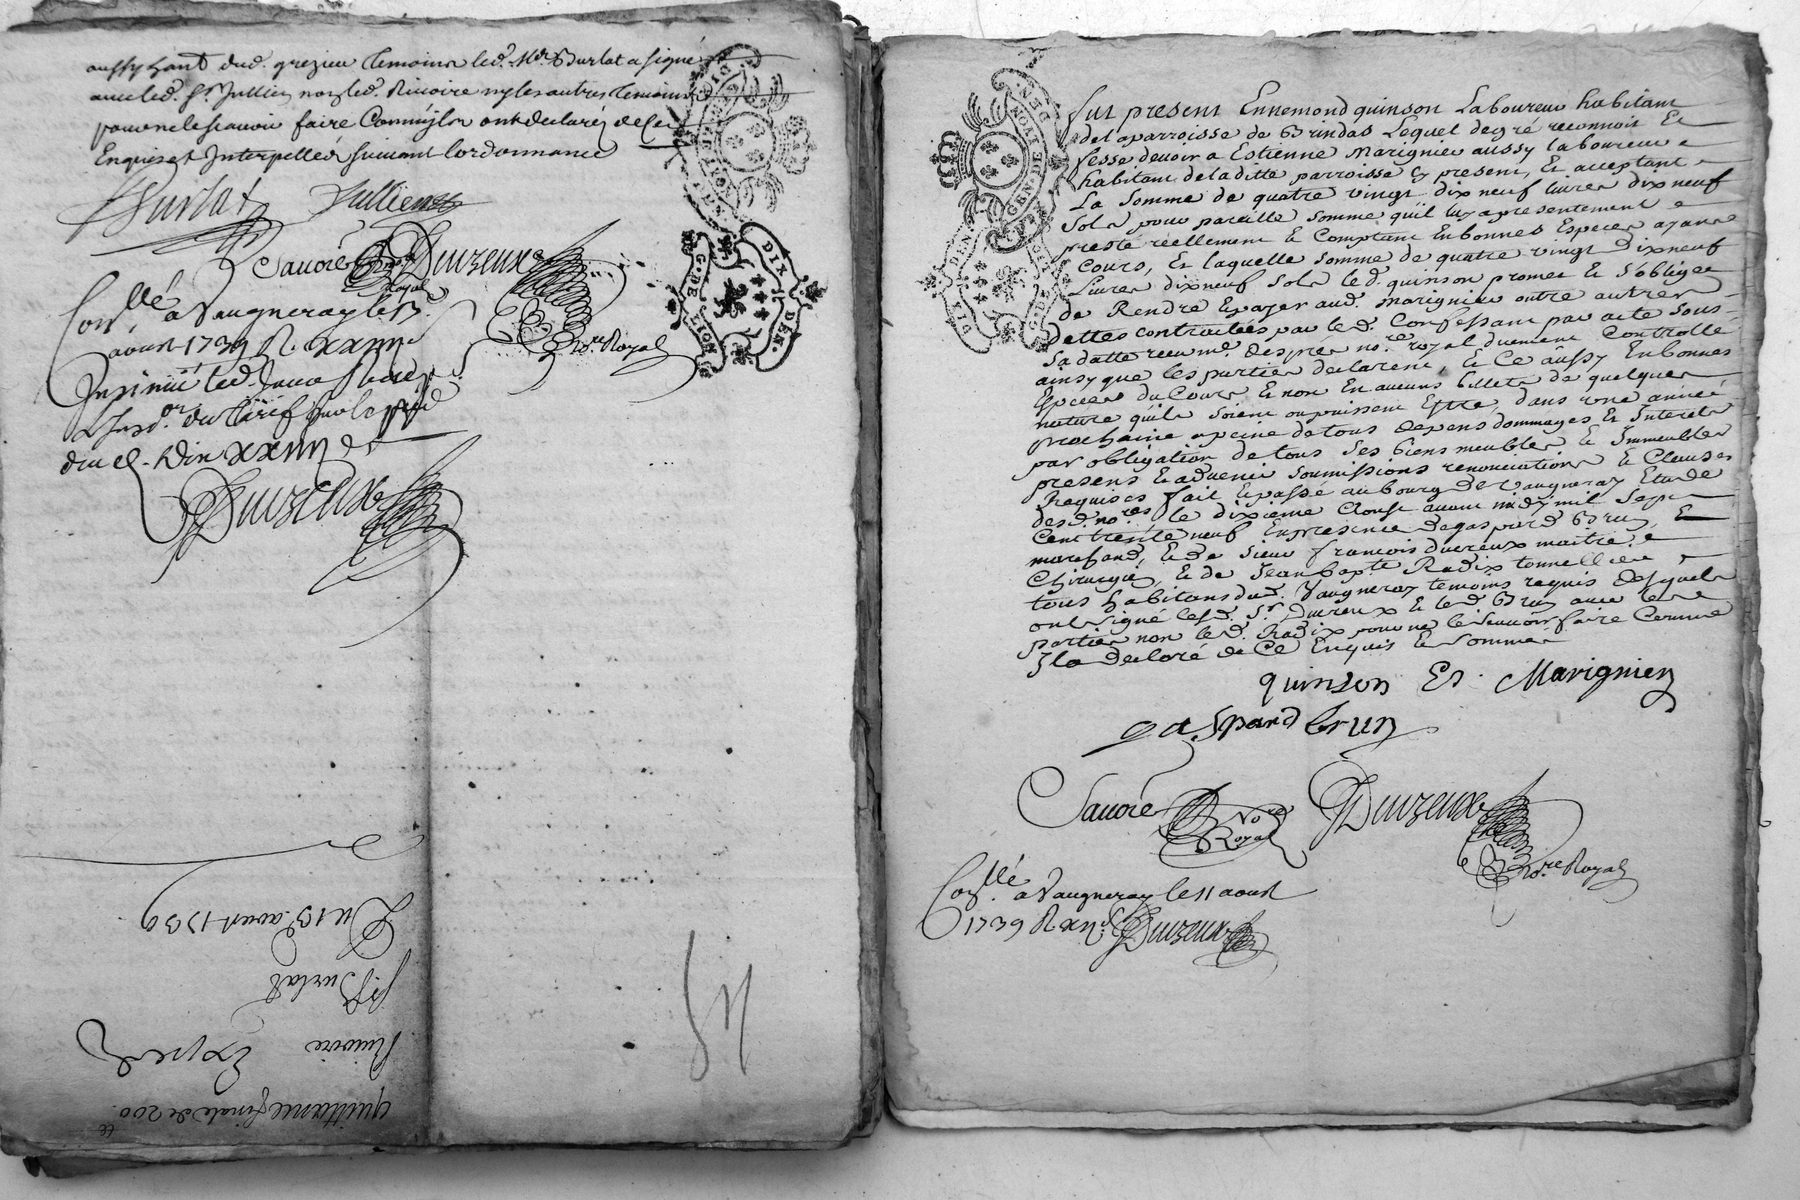 aussy hant dud. grezieu temoins led. Mr. Burlat a signé
avec led. Sr. Jullien non led. Rivoire ny les autres temoins
pour ne le scavoir faire Comme ils ont declaré de ce
Enquis et Interpellés suivant l'ordonnance
Burlat Jullien
Savoré Royal Duvzeux
No.re Royal
Con.llé a Vaugneray le 13.e
aoust 1739 R.
Insinué led. Jour
du tarif
Duvzeux
quittance finale de 200.
Rivoire Exped
Burlat
Du 13.e aoust 1739
DIX DEN.
G. DE LION
fut present Ennemond quinson Laboureur habitant
de la parroisse de Brindas Lequel de gré reconnoit Et
fesse devoir a Estienne Marignier aussy laboureur
habitant de la ditte parroisse cy present, Et acceptant
La Somme de quatre vingt dix neuf livres dix neuf
Sols pour pareille Somme qu'il luy a presentement
presté reellement Et Comptant En bonnes Especes ayant
Cours, Et laquelle Somme de quatre vingt Dixneuf
Livres dixneuf Sols led. quinson promet Et s'oblige
de Rendre Et payer aud. Marignier outre autres
dettes contractées par led. Confessant par acte Sous
Sa datte receu me. des prés no.re royal duement Controllé
ainsy que les parties declarent, Et Ce aussy En bonnes
Especes du Cours Et non En aucuns billets de quelques
nature qu'ils soient ou puissent Estre, dans une année
prochaine a peine de tous depens dommages Et Interets
par obligation de tous Ses biens meubles Et Immeubles
presens Et advenir Soumissions renonciations Et Clauses
Requises fait Et passé au bourg de Vaugneray Etude
desd. no.res le dixieme d'aoust avant midy mil Sept
Cent trente neuf En presence de gaspard Brun
marchand, Et de Sieur francois duvreux maitre
Chirurgien, Et de Jean bap.te Radix tonnellier
tous habitans dud. Vaugneray temoins requis desquels
ont signé lesd. Sr. Duvreux Et led. Brun avec les
parties non led. Radix pour ne le Scavoir faire Comme
Il a declaré de Ce Enquis Et Sommé
quinson Es. Marignier
gaspard brun
Savoré No.re Royal Duvzeux
No.re Royal
Con.llé a Vaugneray le 11 aoust
1739 R Duvzeux